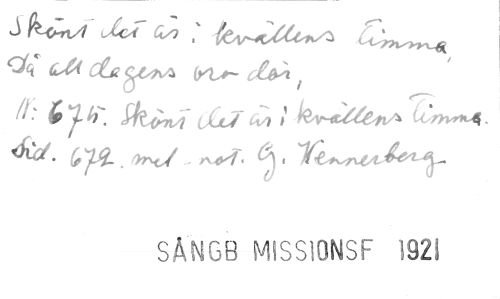 Skönt det är i kvällens timma,
Då all dagens oro dör,
N: 675. Skönt det är i kvällens timma.
Sid. 672. mel-not. G. Wennerberg
SÅNGB MISSIONSF 1921